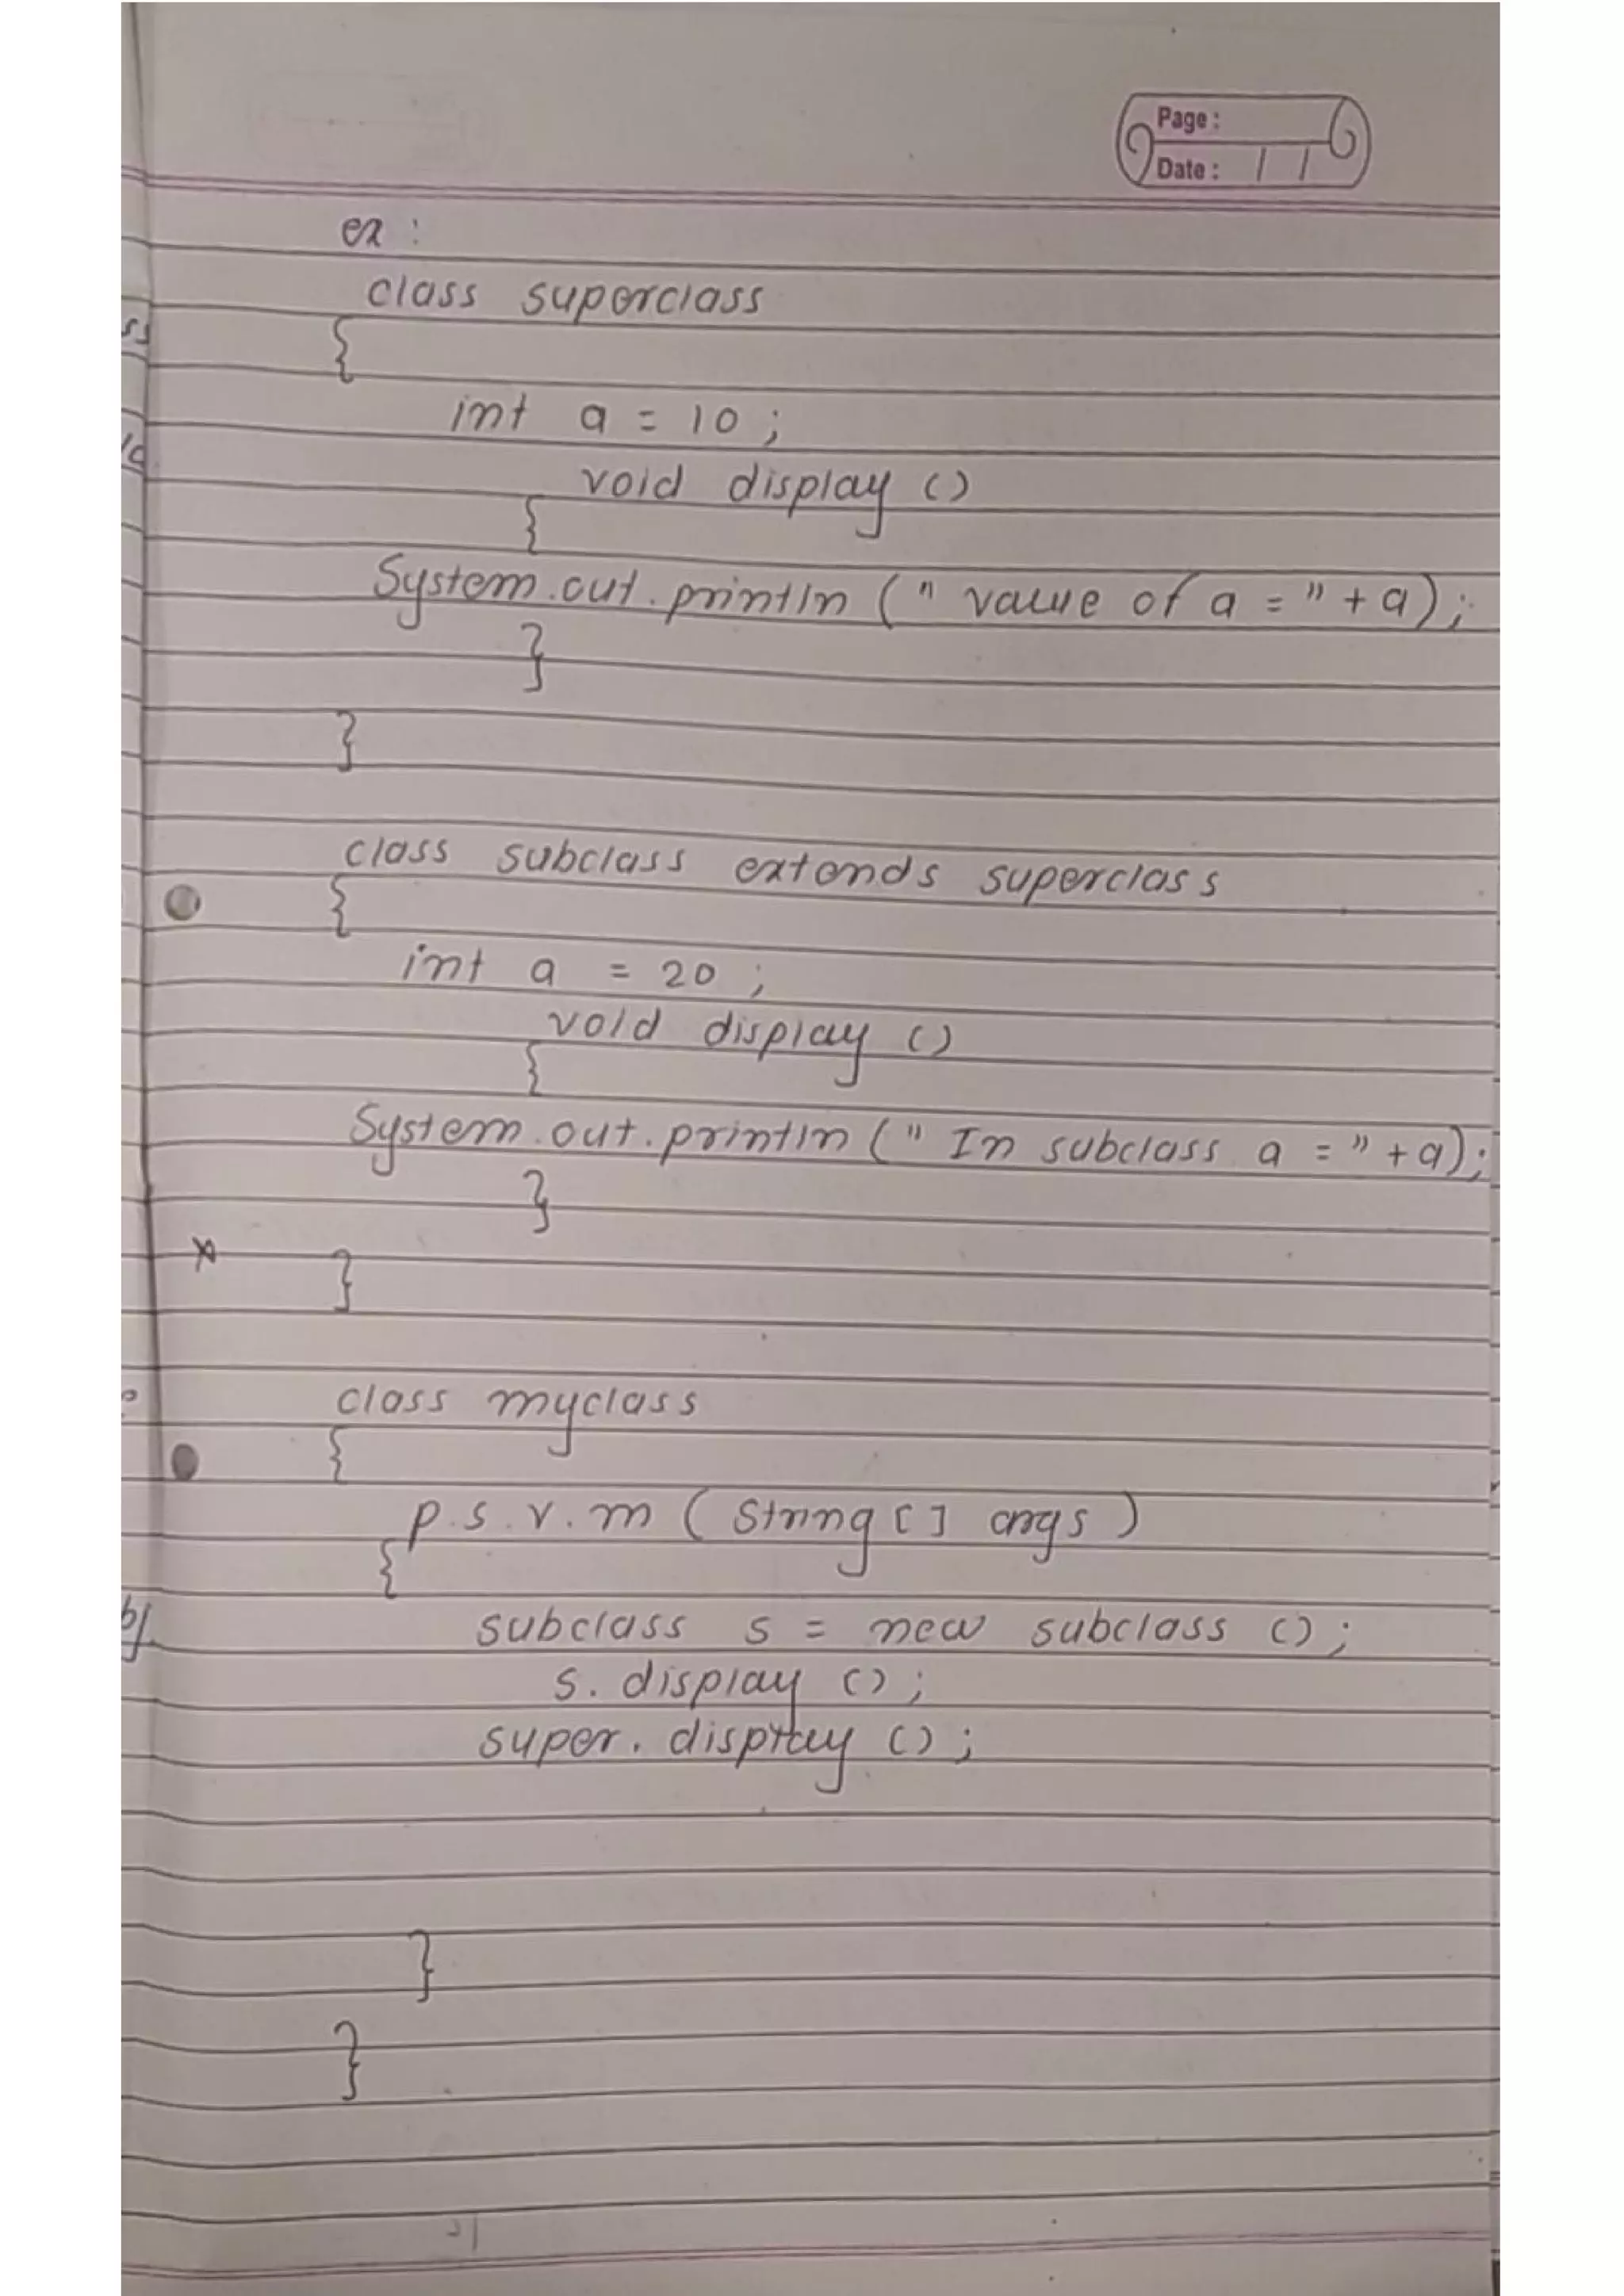 Page :
Date : / /
ex :
class superclass
{
int a = 10 ;
void display ()
{
System.out.println (" value of a = " + a) ;
}
}
class subclass extends superclass
{
int a = 20 ;
void display ()
{
System.out.println (" In subclass a = " + a) ;
}
}
class myclass
{
p.s.v.m ( String [ ] args )
{
subclass s = new subclass () ;
s. display () ;
super. display () ;
}
}